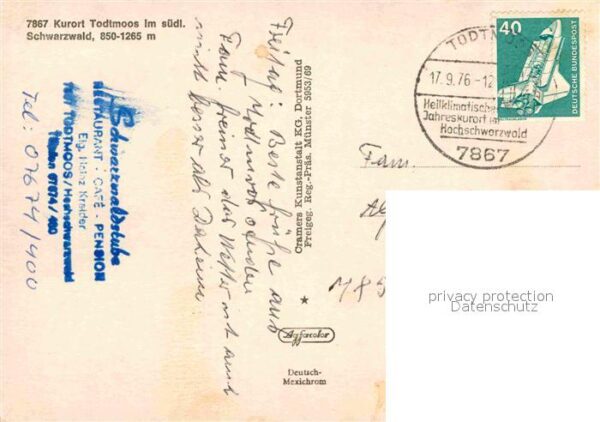 7867 Kurort Todtmoos im südl.
Schwarzwald, 850-1265 m
Schwarzwaldstube
RESTAURANT · CAFÉ · PENSION
Heinz
7867 TODTMOOS / Hochschwarzwald
Telefon 07674/400
Tel: 07674/400
Freitag: Beste Grüße aus
Todtmoos senden
Fam. das Wetter ist auch
nicht besser als Daheim
Cramers Kunstanstalt KG. Dortmund
Freigeg. Reg.-Präs. Münster 5953/69
Agfacolor
Deutsch-
Mexichrom
TODTMOOS
17.9.76-12
Heilklimatischer
Jahreskurort im
Hochschwarzwald
7867
40
DEUTSCHE BUNDESPOST
Fam.
privacy protection
Datenschutz